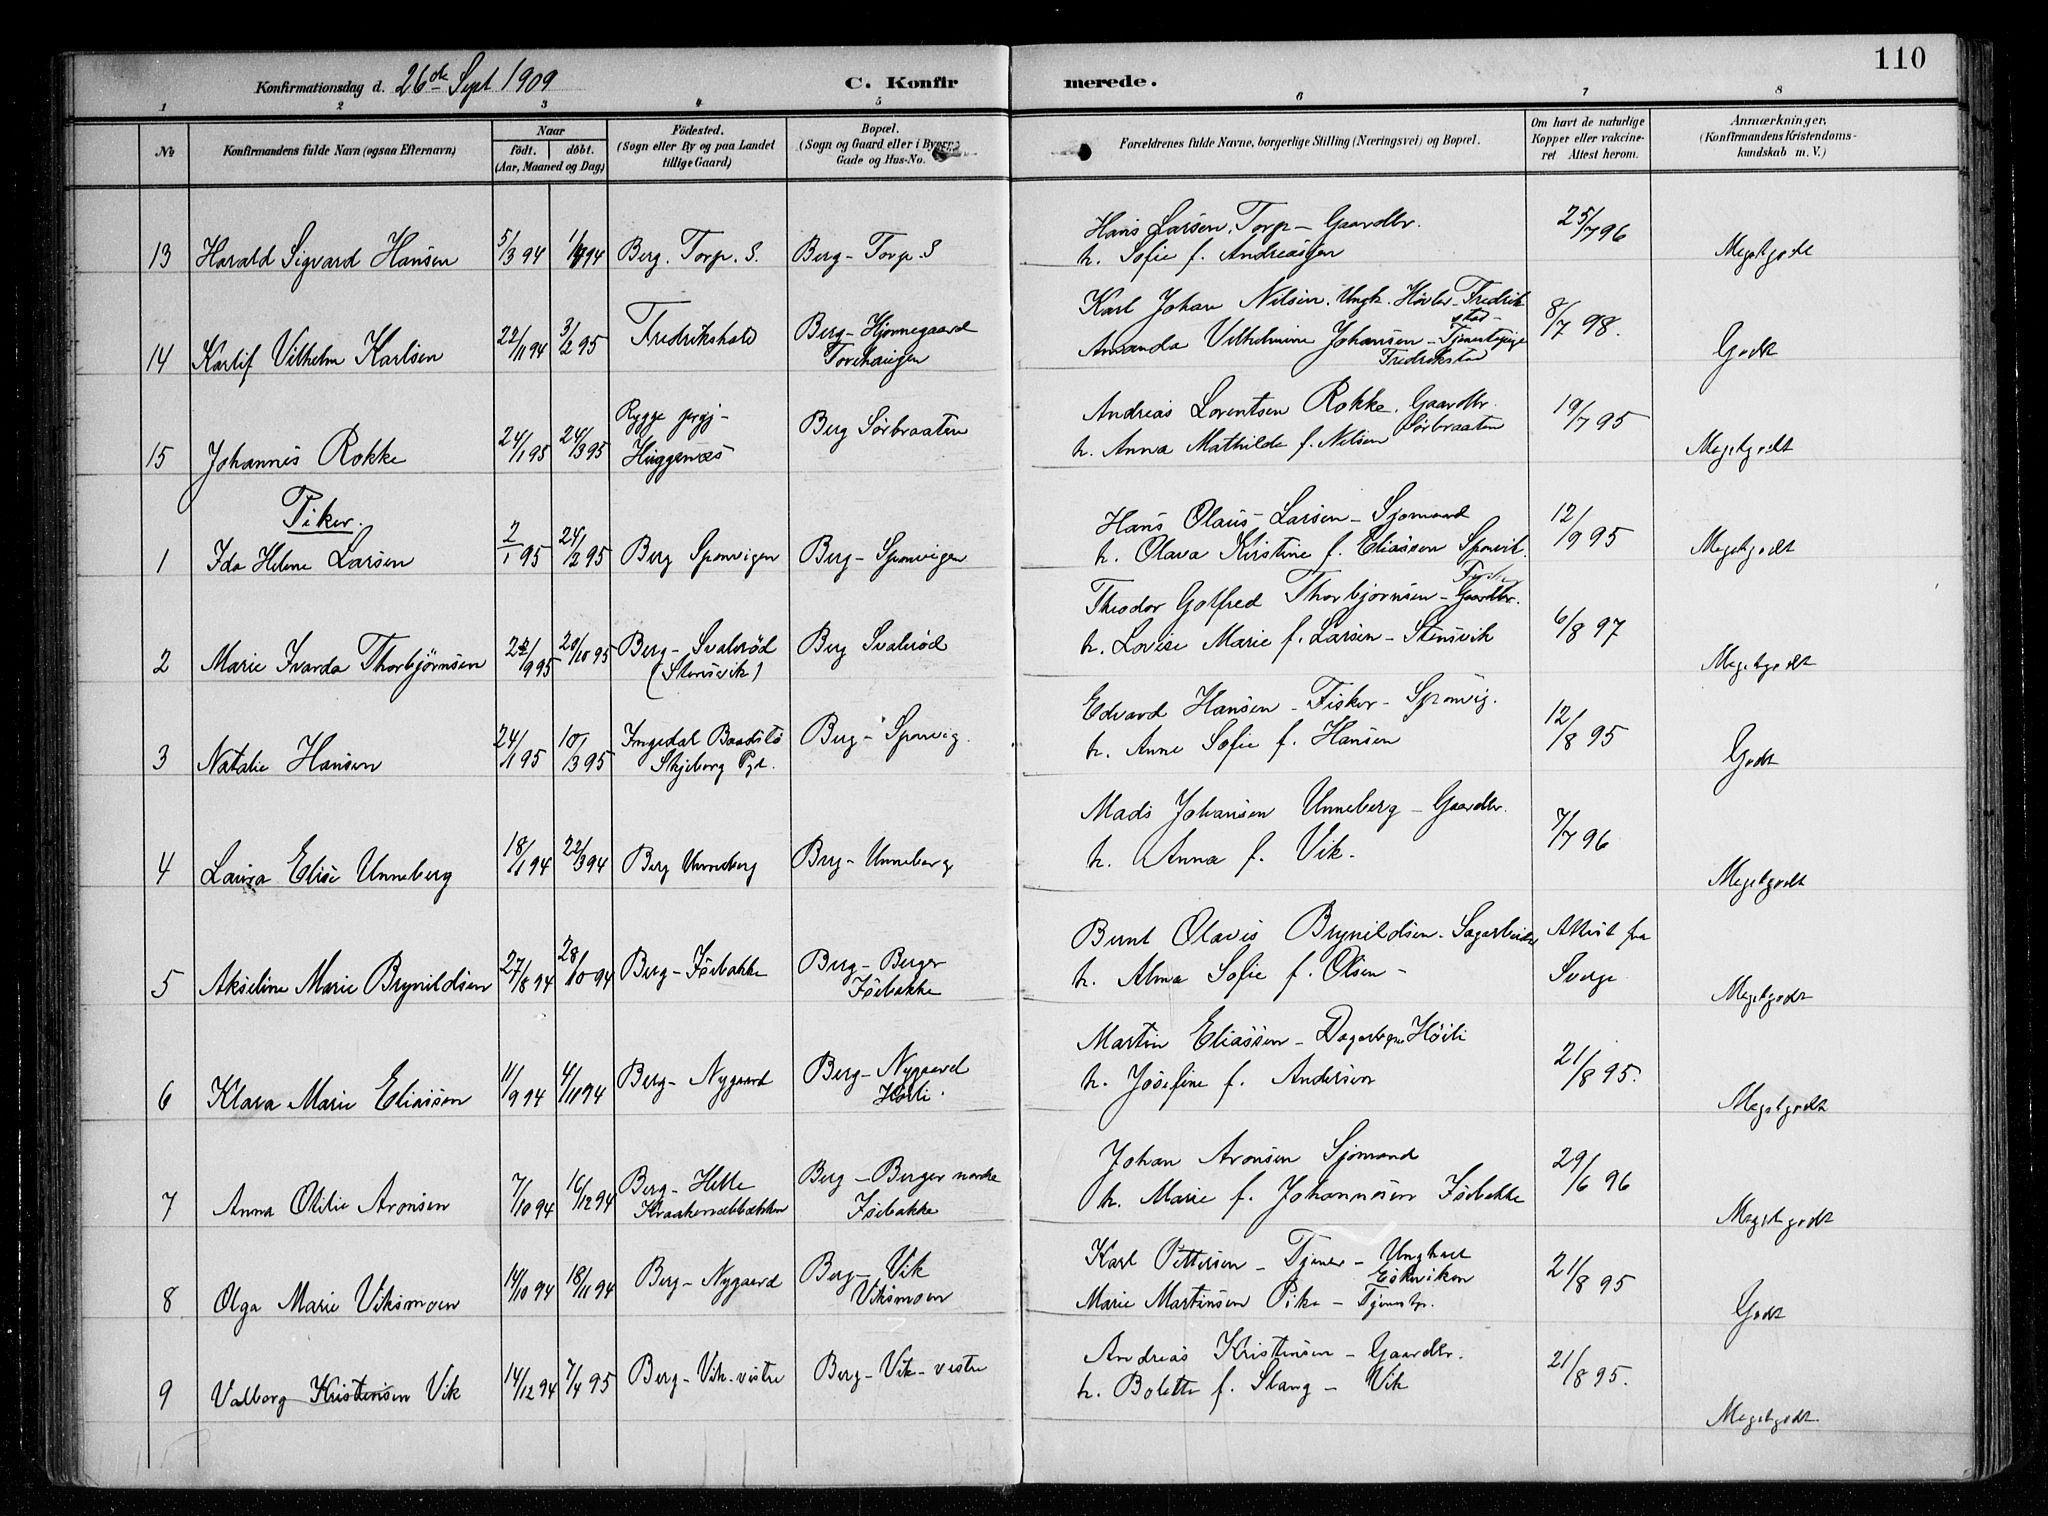 110
Konfirmationsdag d. 26de Sept 1909 C. Konfirmerede.
1 2 3 4 5 6 7 8
No
Konfirmandens fulde Navn (ogsaa Efternavn)
Naar
födt. döbt.
(Aar, Maaned og Dag)
Födested.
(Sogn eller By og paa Landet
tillige Gaard)
Bopæl.
(Sogn og Gaard eller i Byerne
Gade og Hus-No.
Forældrenes fulde Navne, borgerlige Stilling (Næringsvei) og Bopæl.
Om havt de naturlige
Kopper eller vakcineret
Attest herom.
Anmærkninger,
(Konfirmandens Kristendomskundskab
m. V.)
13 Harald Sigvard Hansen 5/3 94 Berg. Torp. S. Berg - Torp. S
Hans Larsen. Torp - Gaardbr.
h. Sofie f. Andreassen
25/7 96 Megetgodt
14 Karlif Vilhelm Karlsen 22/11 94 3/2 95 Fredrikshald Berg - Hjörnegaard
Torehaugen
Karl Johan Nilsen. Ungk. Hövler - Fredrikstad -
Amanda Vilhelmine Johansen - Tjenestepige
Fredrikstad
8/7 98. Godt
15 Johannes Rokke 24/1 95 24/3 95 Rygge prgj -
Huggenæs
Berg Sörbraaten
Andreas Lorentsen Rokke. Gaardbr.
h. Anna Mathilde f. Nilsen Sörbraaten
19/7 95 Megetgodt
Piker.
1 Ida Helene Larsen 2/1 95 24/2 95 Berg Sponvigen Berg - Sponvigen
Hans Olaus Larsen - Sjömand
h. Olava Kirstine f. Eliassen Sponvik.
12/9 95 Megetgodt
2 Marie Ivarda Thorbjörnsen 22/9 95 20/10 95 Berg - Svaleröd
(Stensvik)
Berg Svaleröd
Theodor Golfred Thorbjörnsen - Gaardbr.
h. Lovise Marie f. Larsen - Stensvik
6/8 97 Megetgodt
3 Natalie Hansen 24/1 95 10/3 95 Ingedal Baadstö
Skjeberg Pgd.
Berg - Sponvig.
Edvard Hansen - Fisker - Sponvig.
h. Anne Sofie f. Hansen
12/8 95 Godt
4 Laura Elise Unneberg 18/1 94 22/3 94 Berg Unneberg Berg - Unneberg
Mads Johansen Unneberg - Gaardbr.
h. Anna f. Vik.
7/7 96 Megetgodt
5 Akseline Marie Brynildsen 27/8 94 28/10 94 Berg - Isebakke Berg - Berger
Isebakke
Bernt Olavis Brynildsen - Sagarbeider
h. Alma Sofie f. Olsen -
Attest fra
Sverge
Megetgodt
6 Klara Marie Eliassen 11/9 94 4/11 94 Berg - Nygaard Berg - Nygaard
Höili.
Martin Eliassen - Dagarb. Höili
h. Josefine f. Andersen
21/8 95. Megetgodt
7 Anna Otilie Aronsen 7/10 94 16/12 94 Berg - Helle
Kraakenebbakken
Berg - Berger nordre
Isebakke
Johan Aronsen Sjömand
h. Marie f. Johannesen Isebakke
29/6 96 Megetgodt
8 Olga Marie Viksmoen 14/10 94 18/11 94 Berg - Nygaard Berg - Vik
Viksmoen
Karl Pettersen - Tjener - Ungkarl
Eskeviken
Marie Martinsen Pike - Tjenestp.
21/8 95 Godt
9 Valborg Kristensen Vik 14/12 94 7/4 95 Berg - Vik - vestre Berg - Vik - vestre
Andreas Kristensen - Gaardbr.
h. Bolette f. Stang - Vik
21/8 95. Megetgodt